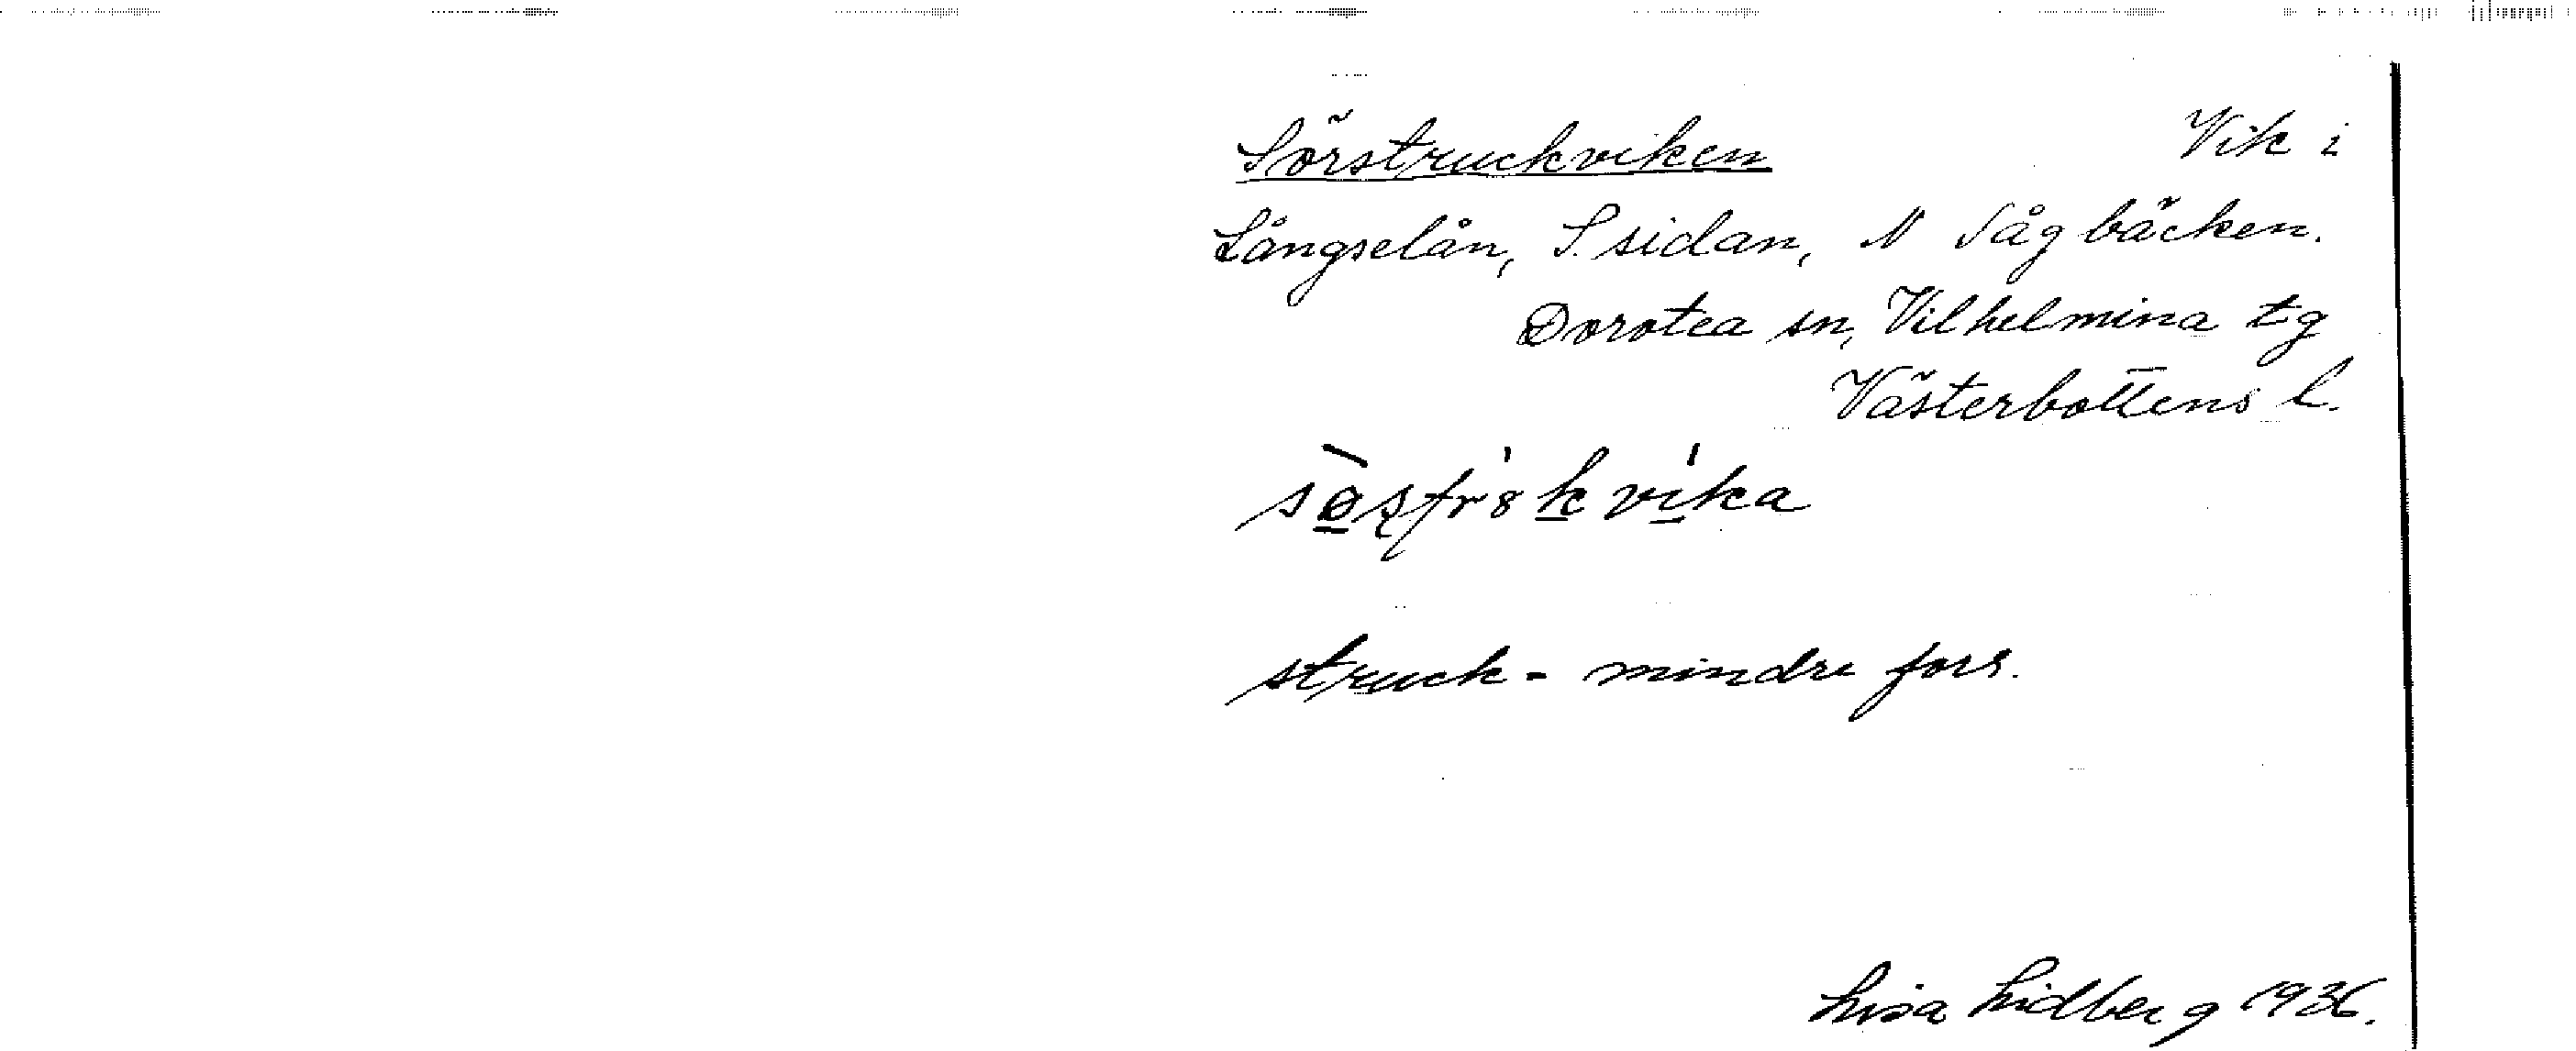 Sörstruckviken Vik i
Långselån, S. sidan, N Sågbäcken.
Dorotea sn, Vilhelmina tg
Västerbottens l.
struck - mindre fors.
Lisa Lidberg 1936.